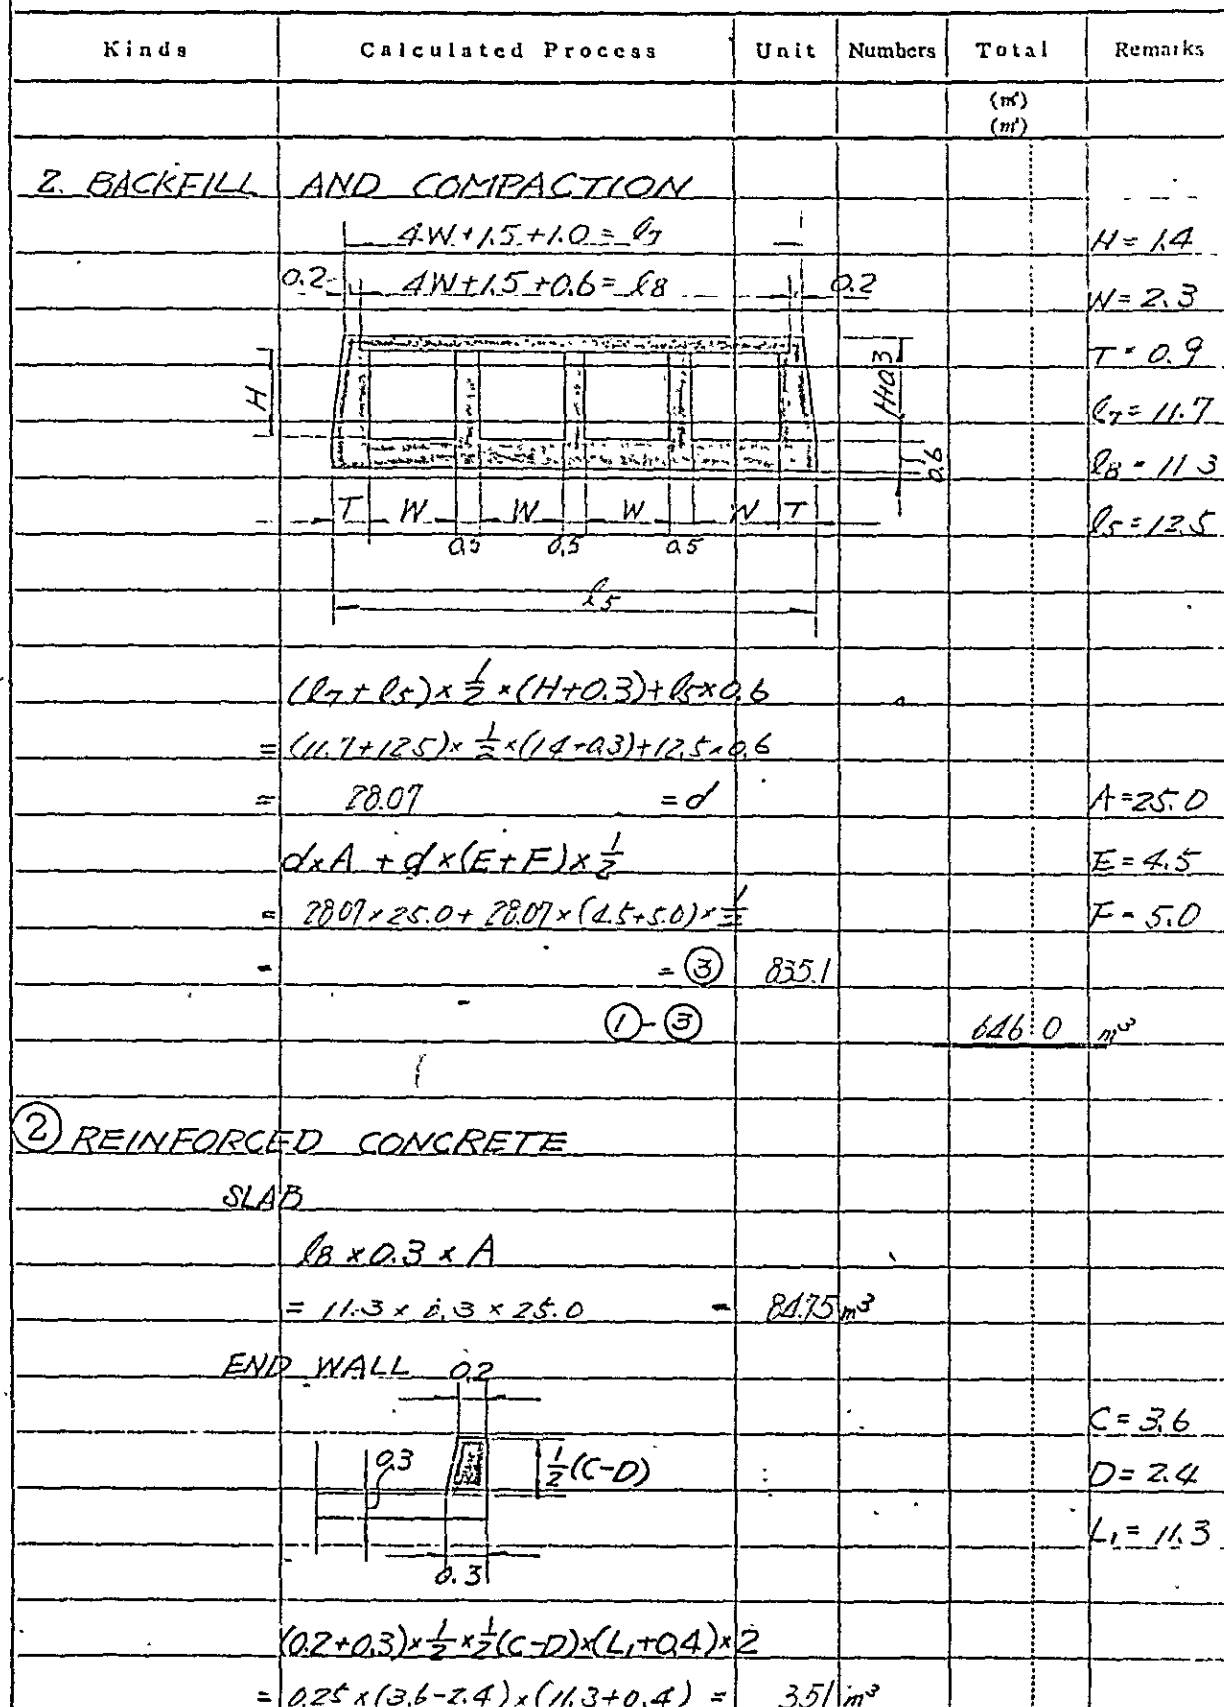 Kinds Calculated Process Unit Numbers Total Remarks
(m²)
(m³)
2. BACKFILL AND COMPACTION
4W+1.5+1.0 = l7 H = 1.4
0.2 4W+1.5+0.6 = l8 0.2 W = 2.3
T = 0.9
H H+0.3 l7 = 11.7
0.6 l8 = 11.3
T W W W W T l5 = 12.5
0.5 0.5 0.5
l5
(l7+l5)×1/2×(H+0.3)+l5×0.6
= (11.7+12.5)×1/2×(1.4+0.3)+12.5×0.6
= 28.07 = d A = 25.0
d×A + d×(E+F)×1/2 E = 4.5
= 28.07×25.0 + 28.07×(4.5+5.0)×1/2 F = 5.0
= = ③ 835.1
①-③ 646.0 m³
② REINFORCED CONCRETE
SLAB
l8 × 0.3 × A
= 11.3 × 0.3 × 25.0 = 84.75 m³
END WALL 0.2
C = 3.6
0.3 1/2(C-D) D = 2.4
L1 = 11.3
0.3
(0.2+0.3)×1/2×1/2(C-D)×(L1+0.4)×2
= 0.25×(3.6-2.4)×(11.3+0.4) = 3.51 m³